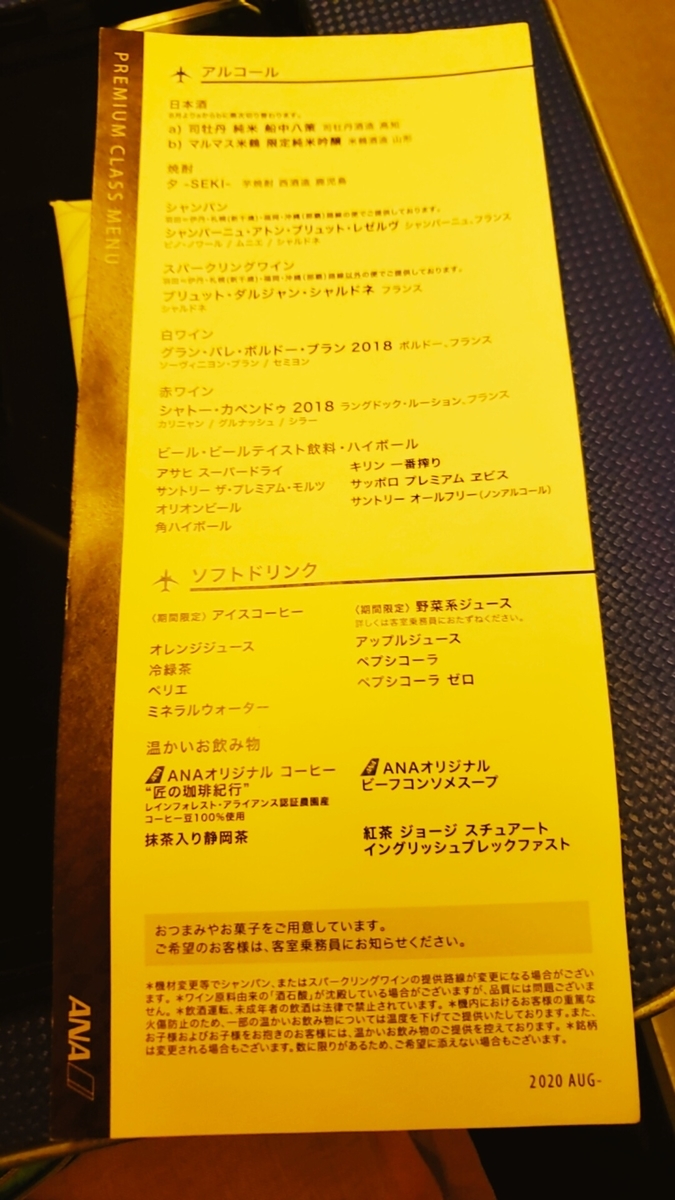 PREMIUM CLASS MENU
アルコール
日本酒
a) 司牡丹 純米 船中八策 司牡丹酒造 高知
b) マルマス米鶴 限定純米吟醸 米鶴酒造 山形
焼酎
夕 -SEKI- 芋焼酎 西酒造 鹿児島
シャンパン
羽田=伊丹・札幌(新千歳)・福岡・沖縄(那覇)路線の便でご提供しております。
シャンパーニュ・アトン・ブリュット・レゼルヴ シャンパーニュ、フランス
ピノ・ノワール / ムニエ / シャルドネ
スパークリングワイン
羽田=伊丹・札幌(新千歳)・福岡・沖縄(那覇)路線以外の便でご提供しております。
ブリュット・ダルジャン・シャルドネ フランス
シャルドネ
白ワイン
グラン・バレ・ボルドー・ブラン 2018 ボルドー、フランス
ソーヴィニヨン・ブラン / セミヨン
赤ワイン
シャトー・カベンドゥ 2018 ラングドック・ルーション、フランス
カリニャン / グルナッシュ / シラー
ビール・ビールテイスト飲料・ハイボール
アサヒ スーパードライ
キリン 一番搾り
サントリー ザ・プレミアム・モルツ
サッポロ プレミアム ヱビス
オリオンビール
サントリー オールフリー(ノンアルコール)
角ハイボール
ソフトドリンク
〈期間限定〉アイスコーヒー
〈期間限定〉野菜系ジュース
詳しくは客室乗務員におたずねください。
オレンジジュース
アップルジュース
冷緑茶
ペプシコーラ
ペリエ
ペプシコーラ ゼロ
ミネラルウォーター
温かいお飲み物
ANAオリジナル コーヒー
"匠の珈琲紀行"
レインフォレスト・アライアンス認証農園産
コーヒー豆100%使用
ANAオリジナル
ビーフコンソメスープ
抹茶入り静岡茶
紅茶 ジョージ スチュアート
イングリッシュブレックファスト
おつまみやお菓子をご用意しています。
ご希望のお客様は、客室乗務員にお知らせください。
*機材変更等でシャンパン、またはスパークリングワインの提供路線が変更になる場合がござい
ます。*ワイン原料由来の「酒石酸」が沈殿している場合がございますが、品質には問題ございま
せん。*飲酒運転、未成年者の飲酒は法律で禁止されています。*機内におけるお客様の重篤な
火傷防止のため、一部の温かいお飲み物については温度を下げてご提供いたしております。また、
お子様およびお子様をお抱きのお客様には、温かいお飲み物のご提供を控えております。*銘柄
は変更される場合もございます。数に限りがあるため、ご希望に添えない場合もございます。
ANA
2020 AUG-